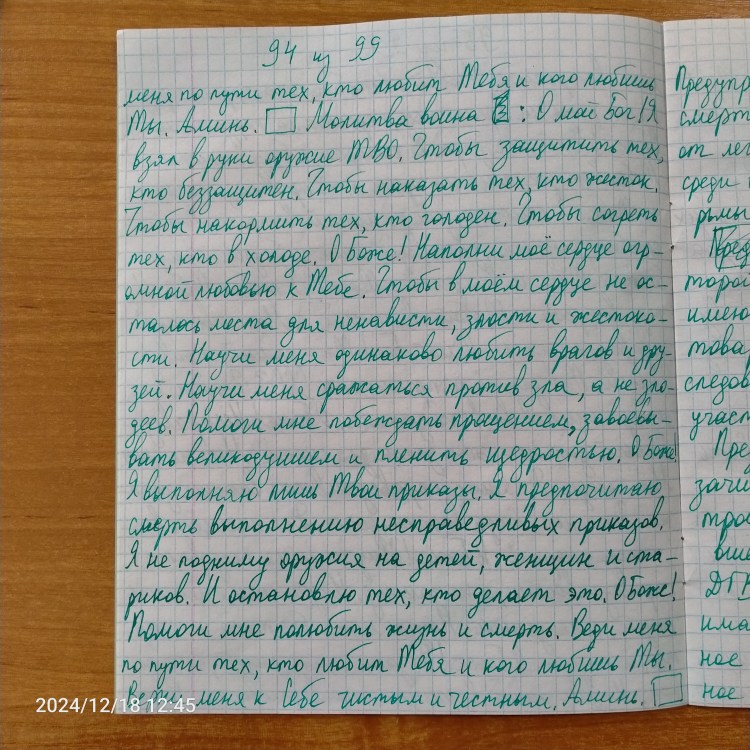 94 из 99
меня по пути тех, кто любит Тебя и кого любишь
Ты. Аминь. Молитва воина 3: О мой Бог! Я
взял в руки оружие ТВО. Чтобы защитить тех,
кто беззащитен. Чтобы наказать тех, кто жесток.
Чтобы накормить тех, кто голоден. Чтобы согреть
тех, кто в холоде. О Боже! Наполни моё сердце огр-
омной любовью к Тебе. Чтобы в моём сердце не ос-
талось места для ненависти, злости и жестоко-
сти. Научи меня одинаково любить врагов и дру-
зей. Научи меня сражаться против зла, а не зло-
деев. Помоги мне побеждать прощением, завоёвы-
вать великодушием и пленить щедростью. О Боже!
Я выполняю лишь Твои приказы. Я предпочитаю
смерть выполнению несправедливых приказов.
Я не подниму оружия на детей, женщин и ста-
риков. И остановлю тех, кто делает это. О Боже!
Помоги мне полюбить жизнь и смерть. Веди меня
по пути тех, кто любит Тебя и кого любишь Ты.
Веди меня к Себе чистым и честным. Аминь.
Предупр
смерт
от лег
среди
рымы
Пред
торой
имею
това
следов
участ
Пре
зачи
трос
вше
ДТП
има
ное
ное
2024/12/18 12:45